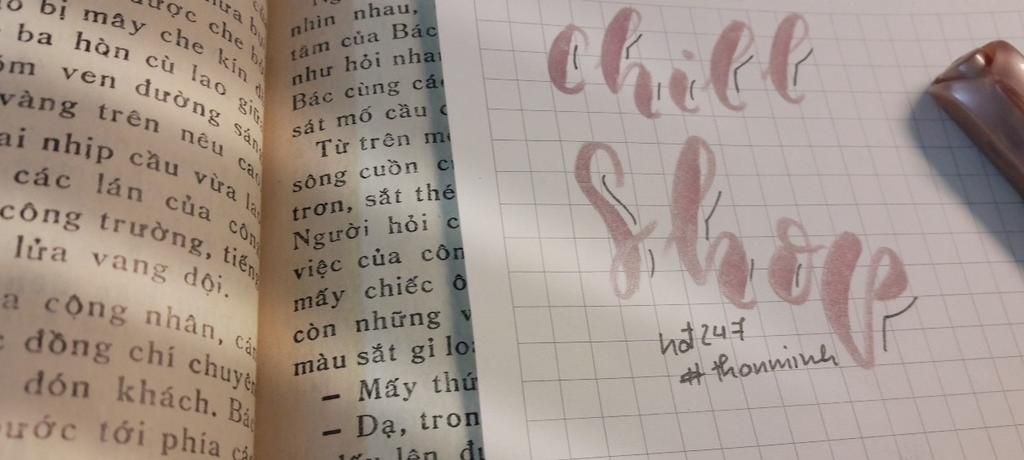 bị mây che kín
ba hòn cù lao giữa
ven đường sáng
vàng trên nêu cao
nhịp cầu vừa
các lán của công
công trường, tiếng
lửa vang dội.
cộng nhân, cán
đồng chí chuyên
đón khách. Bác
tới phía
nhìn nhau,
tâm của Bác
như hỏi nhau
Bác cùng
sát mố cầu
Từ trên
sông cuồn
trơn, sắt
Người hỏi
việc của
mấy chiếc
còn những
màu sắt gỉ
– Mấy
– Dạ,
lên
chill
Shop
hot247
#thonminh